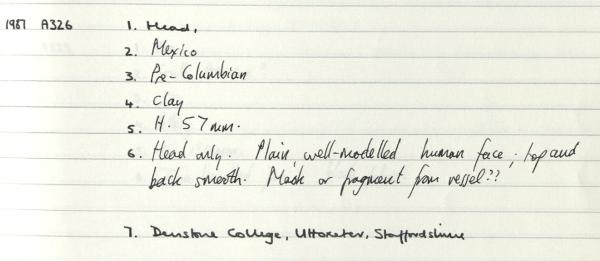 1987 A326 1. Head,
2. Mexico
3. Pre-Columbian
4. Clay
5. H. 57mm.
6. Head only. Plain, well-modelled human face; top and
back smooth. Mask or fragment from vessel??
7. Denstone College, Uttoxeter, Staffordshire